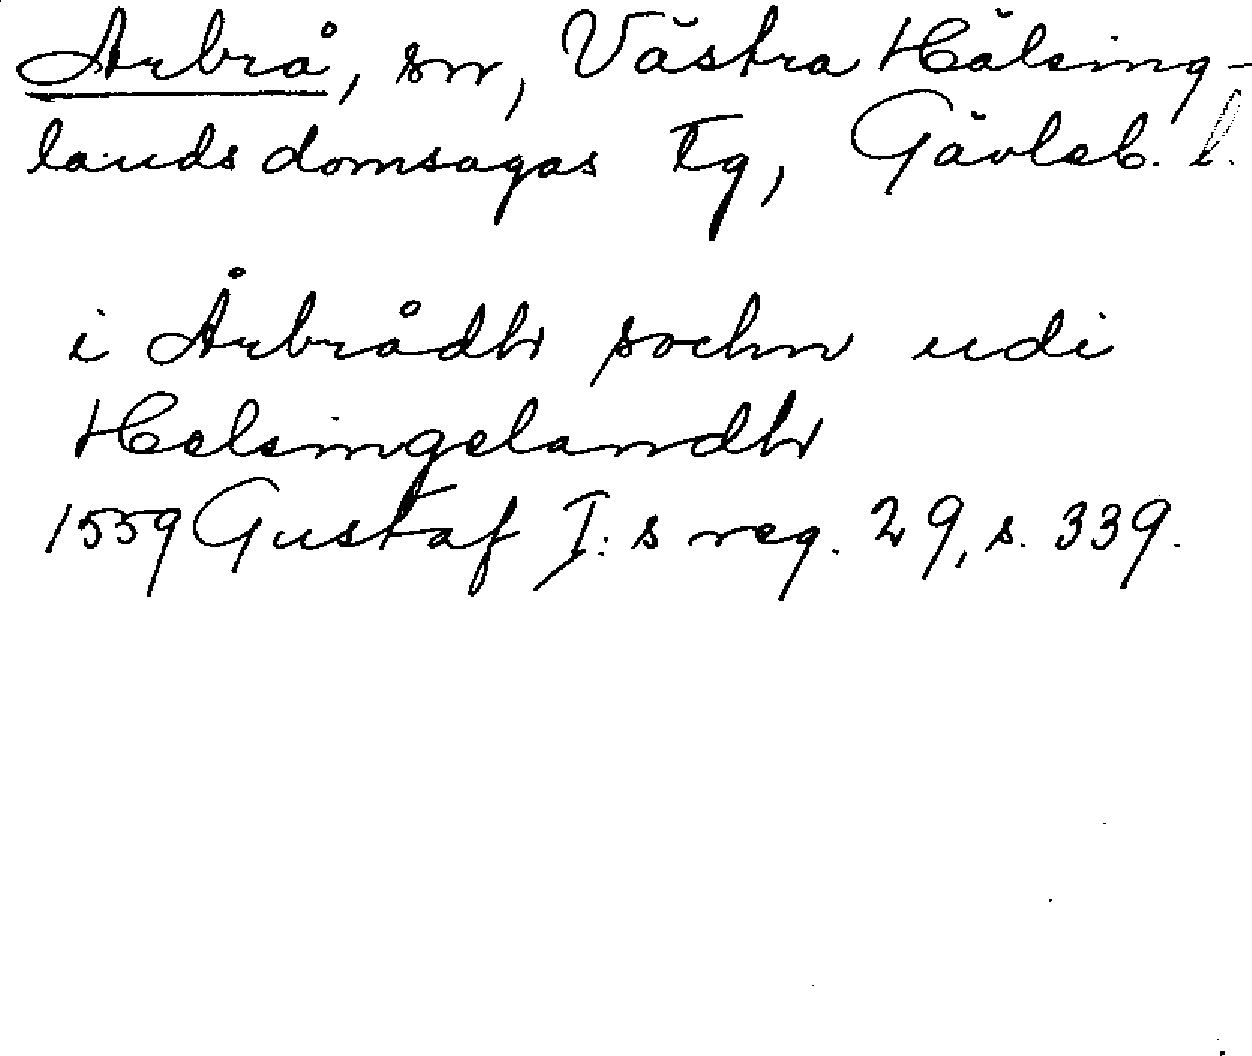 Arbrå, sn, Västra Hälsing-
lands domsagas tg, Gävleb. l.
i Årbrådh sochn udi
Helsingelandh
1559 Gustaf I: s reg. 29, s. 339.